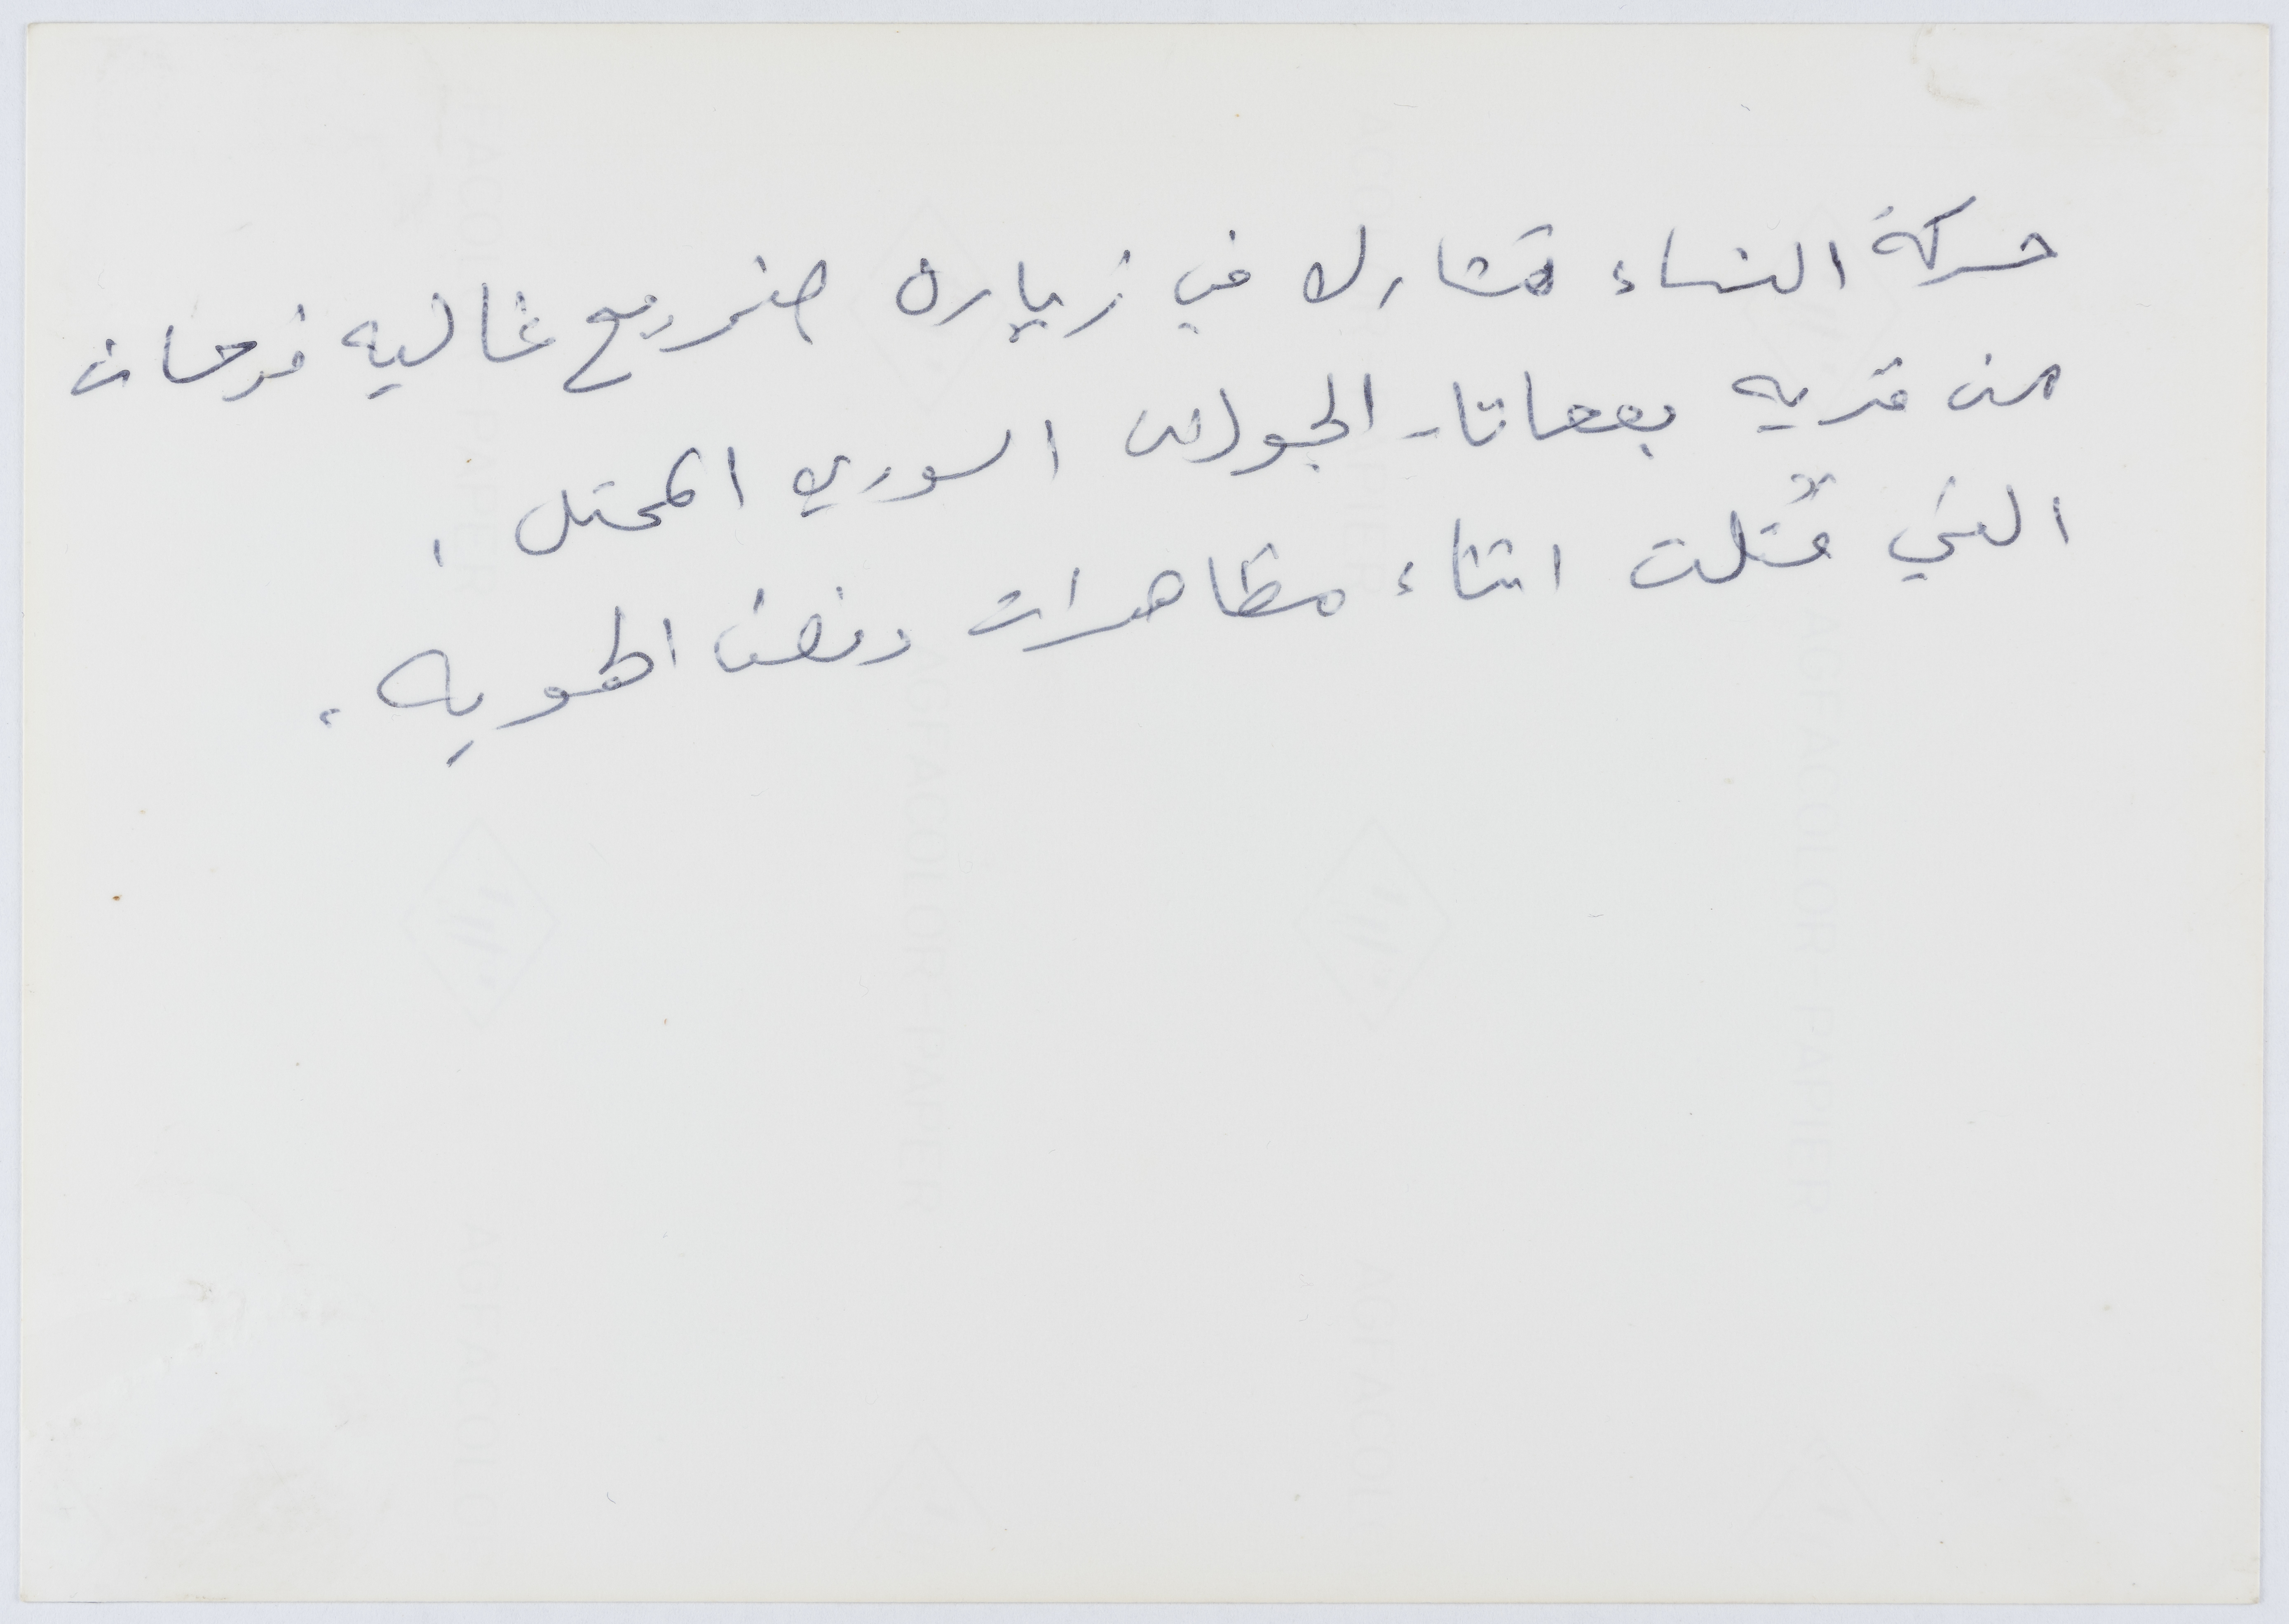 حركة النساء تشارك في زيارة ضريح غاليه فرحات
من قريه بقعاتا - الجولان السوري المحتل .
التي قُتلت اثناء مظاهرات رفض الهويه .
AGFACOLOR-PAPER
AGFACOLOR-PAPIER